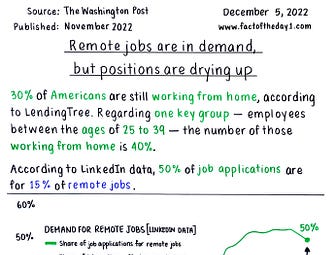 Source: The Washington Post
December 5, 2022
Published: November 2022
www.factoftheday1.com
Remote jobs are in demand,
but positions are drying up
30% of Americans are still working from home, according
to LendingTree. Regarding one key group — employees
between the ages of 25 to 39 — the number of those
working from home is 40%.
According to LinkedIn data, 50% of job applications are
for 15% of remote jobs.
60%
50%
DEMAND FOR REMOTE JOBS [LINKEDIN DATA]
Share of job applications for remote jobs
50%